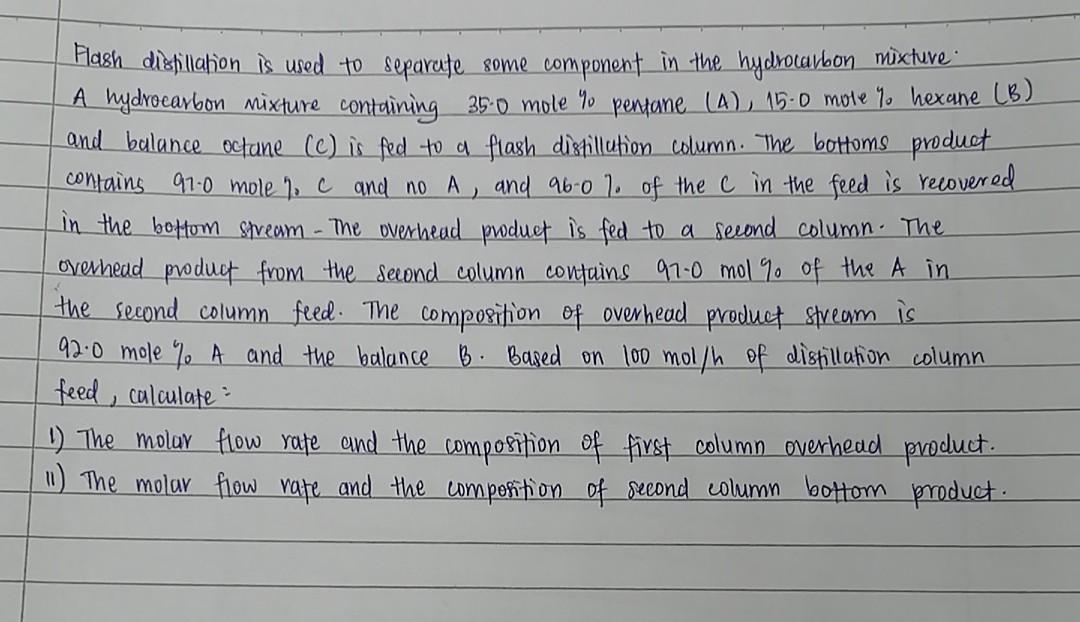 Flash distillation is used to separate some component in the hydrocarbon mixture.
A hydrocarbon mixture containing 35.0 mole % pentane (A), 15.0 mole % hexane (B)
and balance octane (C) is fed to a flash distillation column. The bottoms product
contains 97.0 mole % C and no A, and 96.0 % of the C in the feed is recovered
in the bottom stream - The overhead product is fed to a second column. The
overhead product from the second column contains 97.0 mol % of the A in
the second column feed. The composition of overhead product stream is
92.0 mole % A and the balance B. Based on 100 mol/h of distillation column
feed, calculate:
I) The molar flow rate and the composition of first column overhead product.
II) The molar flow rate and the composition of second column bottom product.